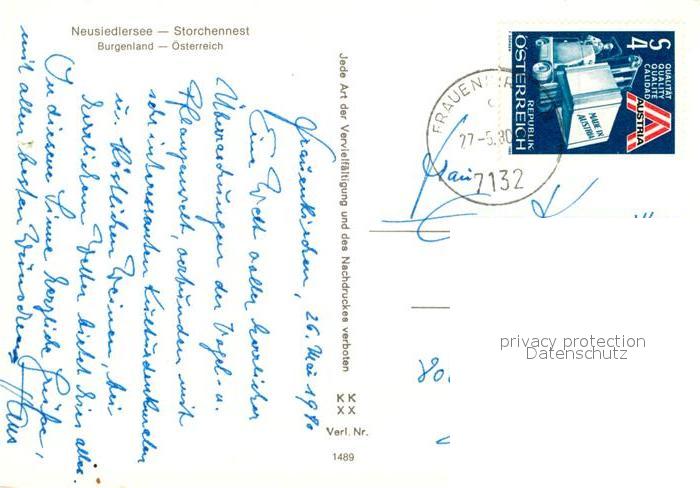 Neusiedlersee — Storchennest
Burgenland — Österreich
Frauenkirchen, 26. Mai 1980
Eine Welt voller herrlicher
Überraschungen der Vogel- u.
Pflanzenwelt, verbunden mit
sehr interessanten Kulturdenkmalen
u. köstlichen Weinen, bei
herrlichem Wetter bietet hier alles.
In diesem Sinne herzliche Grüße,
mit allen besten Wünschen
Jede Art der Vervielfältigung und des Nachdruckes verboten
K K
X X
Verl. Nr.
1489
FRAUENKIR
27-5.80
7132
S 4
QUALITÄT
QUALITY
QUALITÉ
CALIDAD
AUSTRIA
MADE IN
AUSTRIA
REPUBLIK
ÖSTERREICH
Frau
K
80
privacy protection
Datenschutz